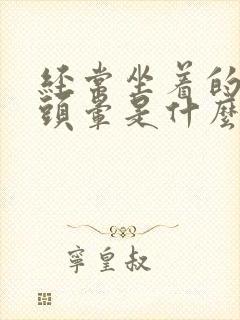 经常坐着的
頭暈是什麼
寧皇叔